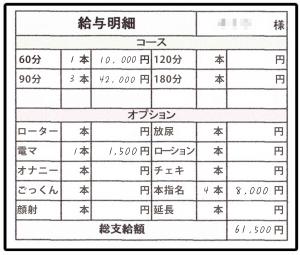 給与明細 様
コース
60分 1本 10,000円 120分 本 円
90分 3本 42,000円 180分 本 円
オプション
ローター 本 円 放尿 本 円
電マ 1本 1,500円 ローション 本 円
オナニー 本 円 チェキ 本 円
ごっくん 本 円 本指名 4本 8,000円
顔射 本 円 延長 本 円
総支給額 61,500円